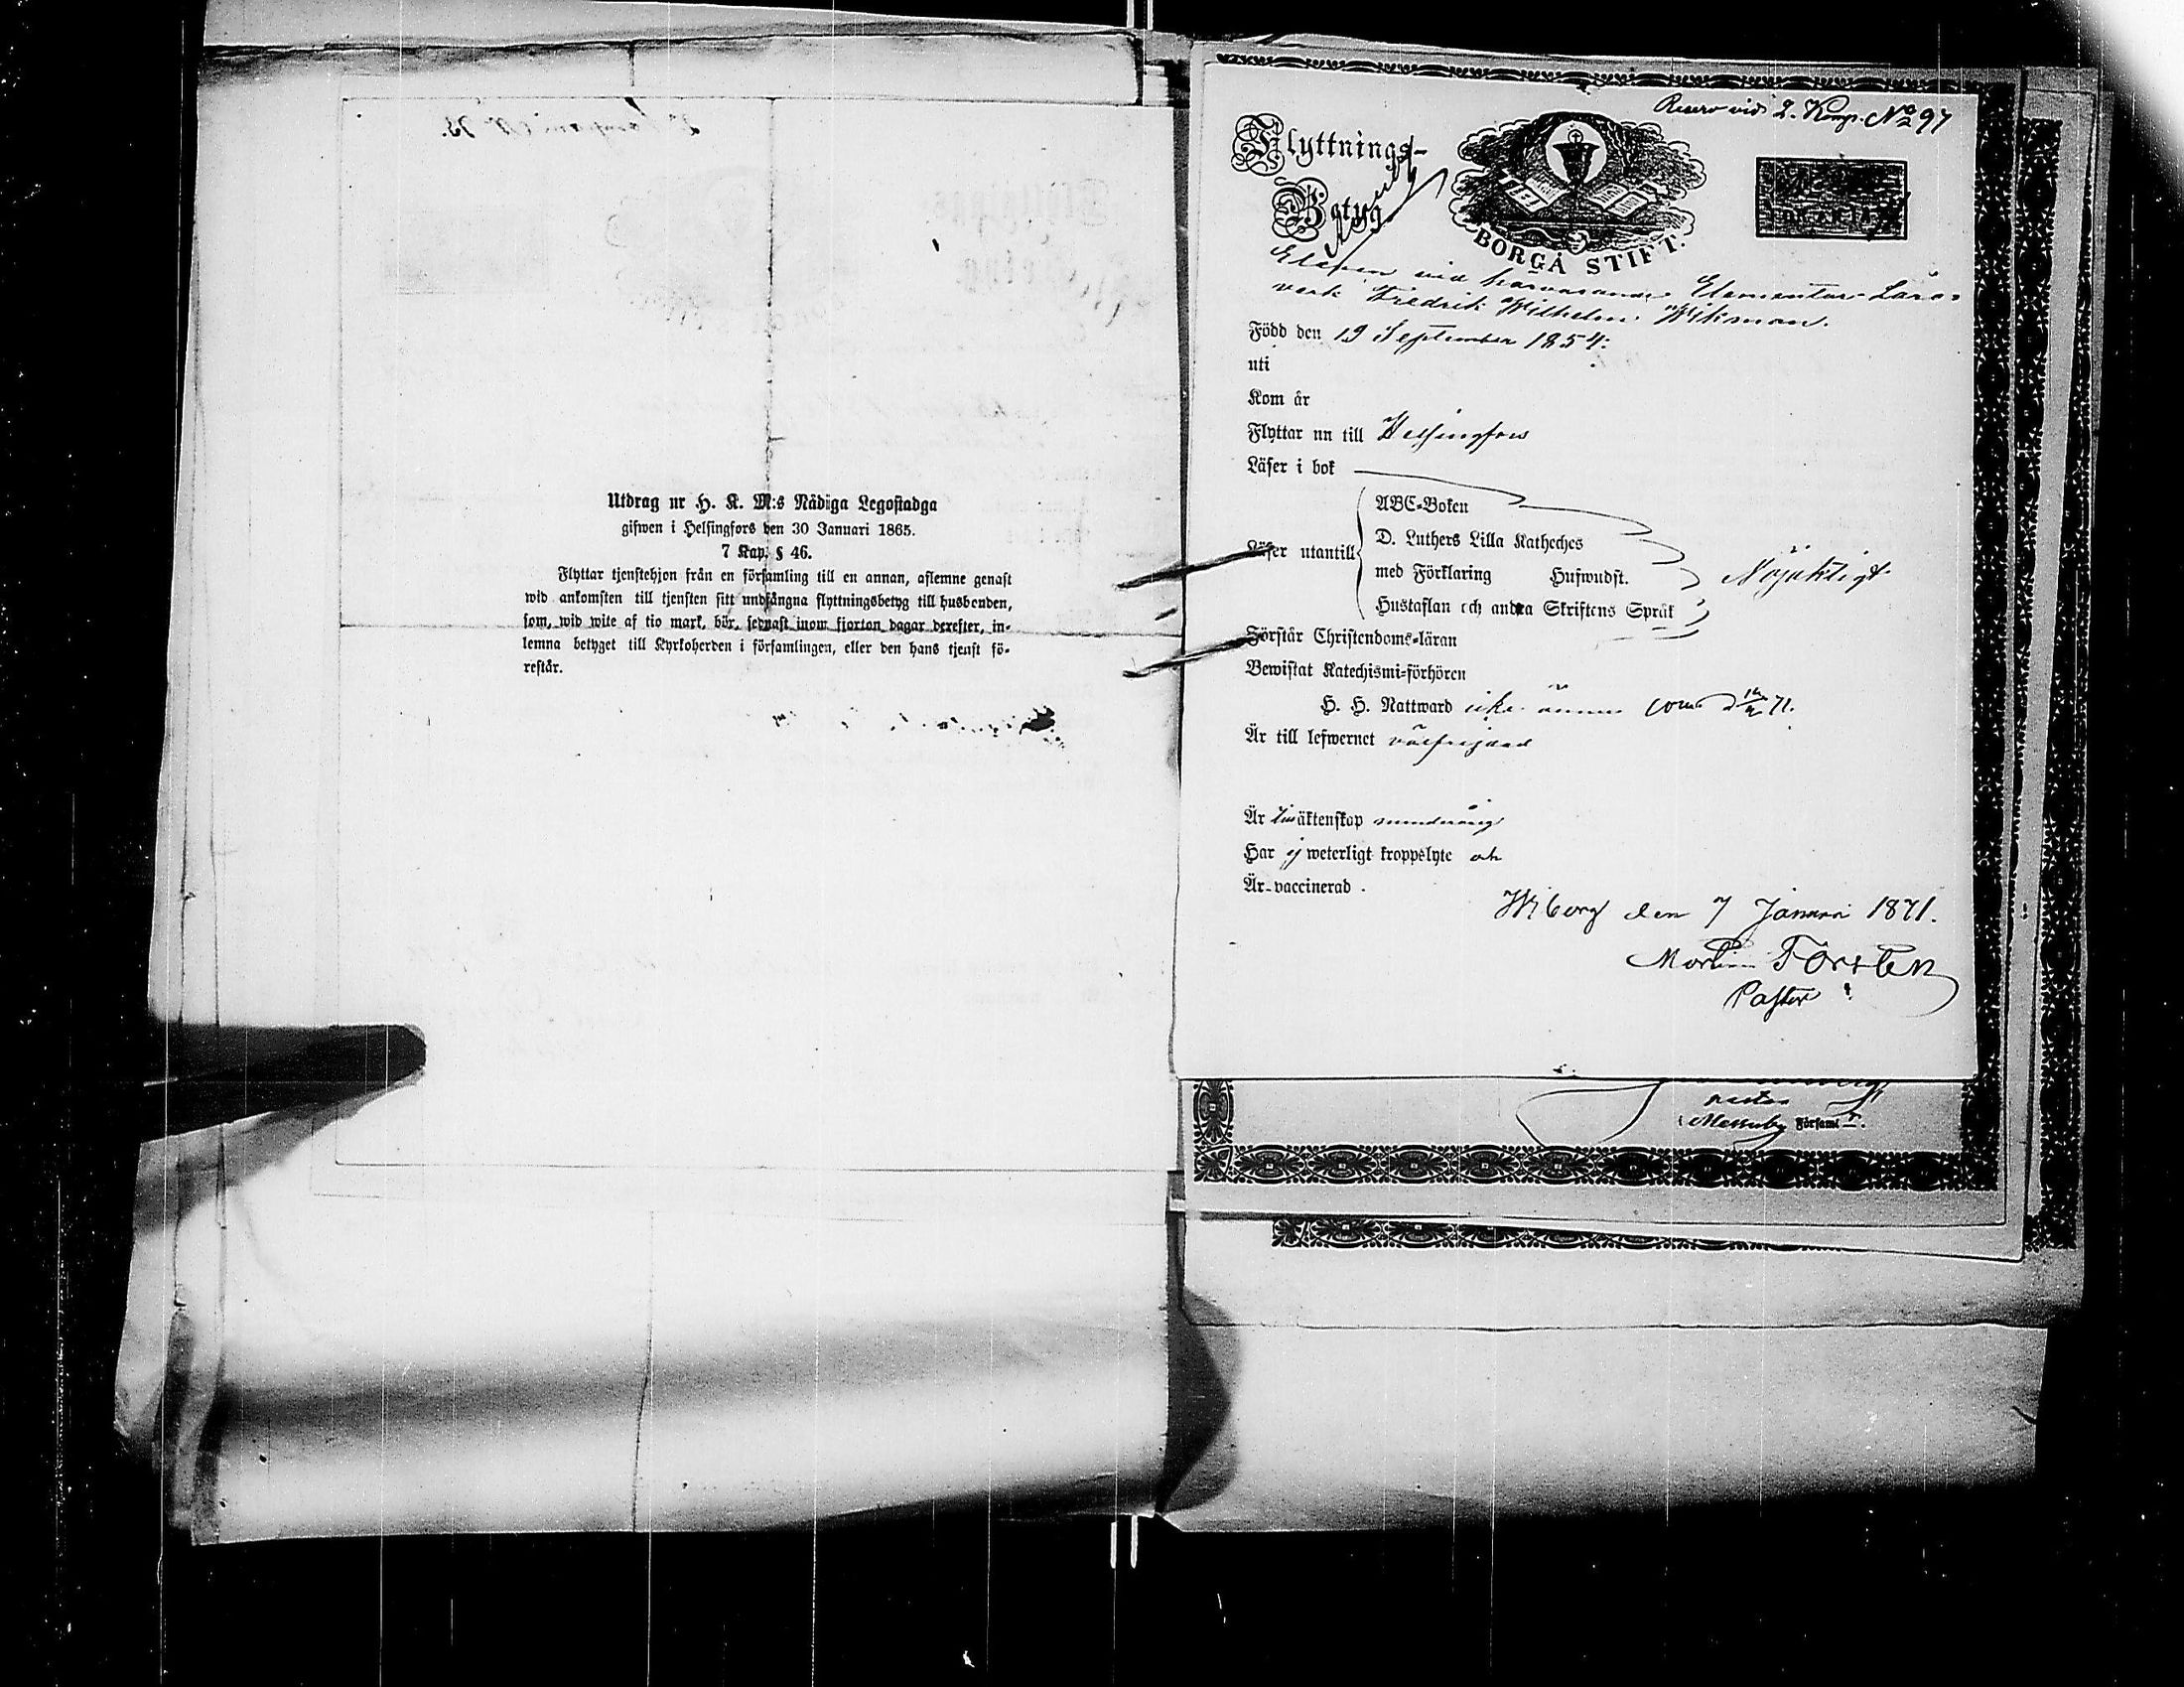 Utdrag ur H. K. M:s Nådiga Legostadga
gifwen i Helsingfors den 30 Januari 1865.
7 Kap. § 46.
Flyttar tjenstehjon från en församling till en annan, aflemne genast
wid ankomsten till tjensten sitt undfångna flyttningsbetyg till husbonden,
som, wid wite af tio mark, bör, sednast inom fjorton dagar derefter, in-
lemna betyget till Kyrkoherden i församlingen, eller den hans tjenst fö-
restår.
Reserv vid 2. Komp. No 97
Flyttnings-
Betyg
BORGÅ STIFT.
Eleven vid härvarande Elementar-Läro-
verk Fredrik Wilhelm Wikman.
Född den 19 September 1854.
uti
Kom år
Flyttar nu till Helsingfors
Läser i bok
ABC-Boken
Läser utantill
D. Luthers Lilla Katheches
med Förklaring Hufwudst.
Nöjaktigt
Hustaflan och andra Skriftens Språk
Förstår Christendoms-läran
Bewistat Katechismi-förhören
H. H. Nattward icke ännu
Är till lefwernet välfrejdad
Är till äktenskap minderårig
Har ej weterligt kroppslyte och
Är vaccinerad.
Wiborg den 7 Januari 1871.
Martin Forstén
Pastor
Messuby Församl